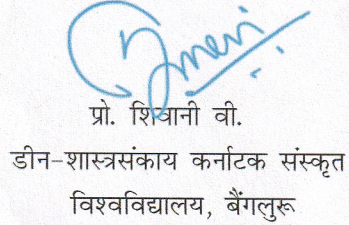 प्रो. शिवानी वी.
डीन-शास्त्रसंकाय कर्नाटक संस्कृत
विश्वविद्यालय, बैंगलुरू